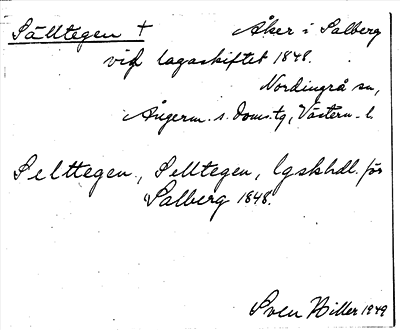 Sälltegen † Åker i Salberg
vid lagaskiftet 1848.
Nordingrå sn,
Ångerm. s. doms.tg, Västern. l.
Selttegen, Selltegen, lgskhdl. för
Salberg 1848.
Sven Hiller 1949